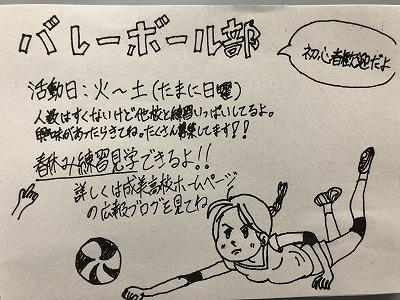 バレーボール部
初心者歓迎だよ
活動日:火〜土(たまに日曜)
人数はすくないけど他校と練習いっぱいしてるよ。
興味があったらきてね。たくさん募集してます!!
春休み練習見学できるよ!!
詳しくは成美高校ホームページ
の広報ブログを見てね